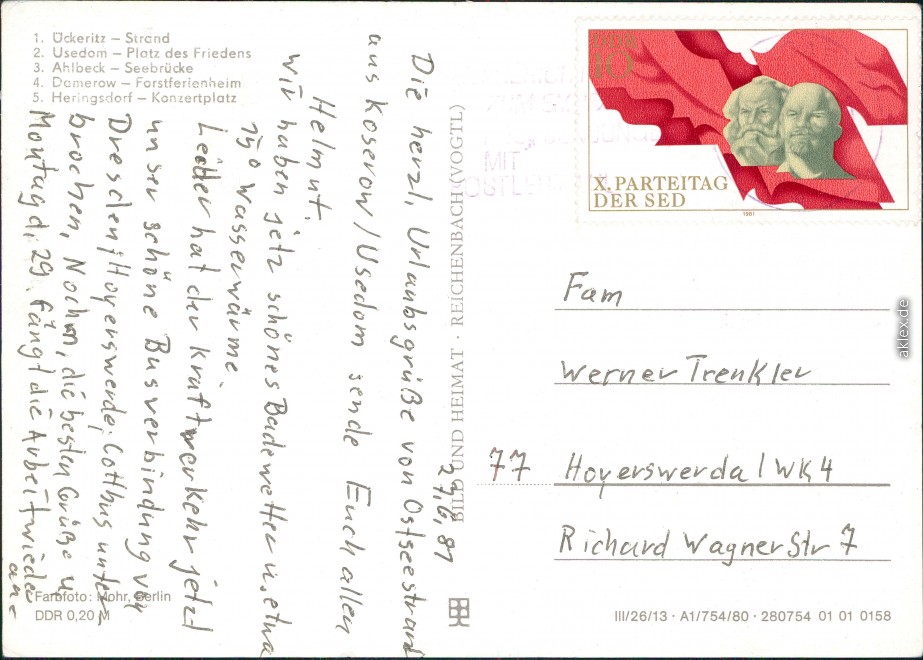 1. Ückeritz – Strand
2. Usedom – Platz des Friedens
3. Ahlbeck – Seebrücke
4. Damerow – Forstferienheim
5. Heringsdorf – Konzertplatz
27,6,81
Die herzl, Urlaubsgrüße von Ostseestrand
aus Koserow/Usedom sende Euch allen
Helmut.
Wir haben jetz schönes Badewetter u, etwa
19° Wasserwärme.
Leider hat der Kraftverkehr jetzt
unser schöne Busverbindung von
Dresden, Hoyerswerda, Cottbus unter-
brochen, Nochm, die besten Grüße u
Montag d, 29. fängt die Arbeit wieder
an-
Farbfoto: Mohr, Berlin
DDR 0,20 M
BILD UND HEIMAT · REICHENBACH (VOGTL)
DDR
10
X. PARTEITAG
DER SED
1981
Fam
Werner Trenkler
77 Hoyerswerda / WK4
Richard Wagner Str 7
III/26/13 · A1/754/80 · 280754 01 01 0158
akpool.de